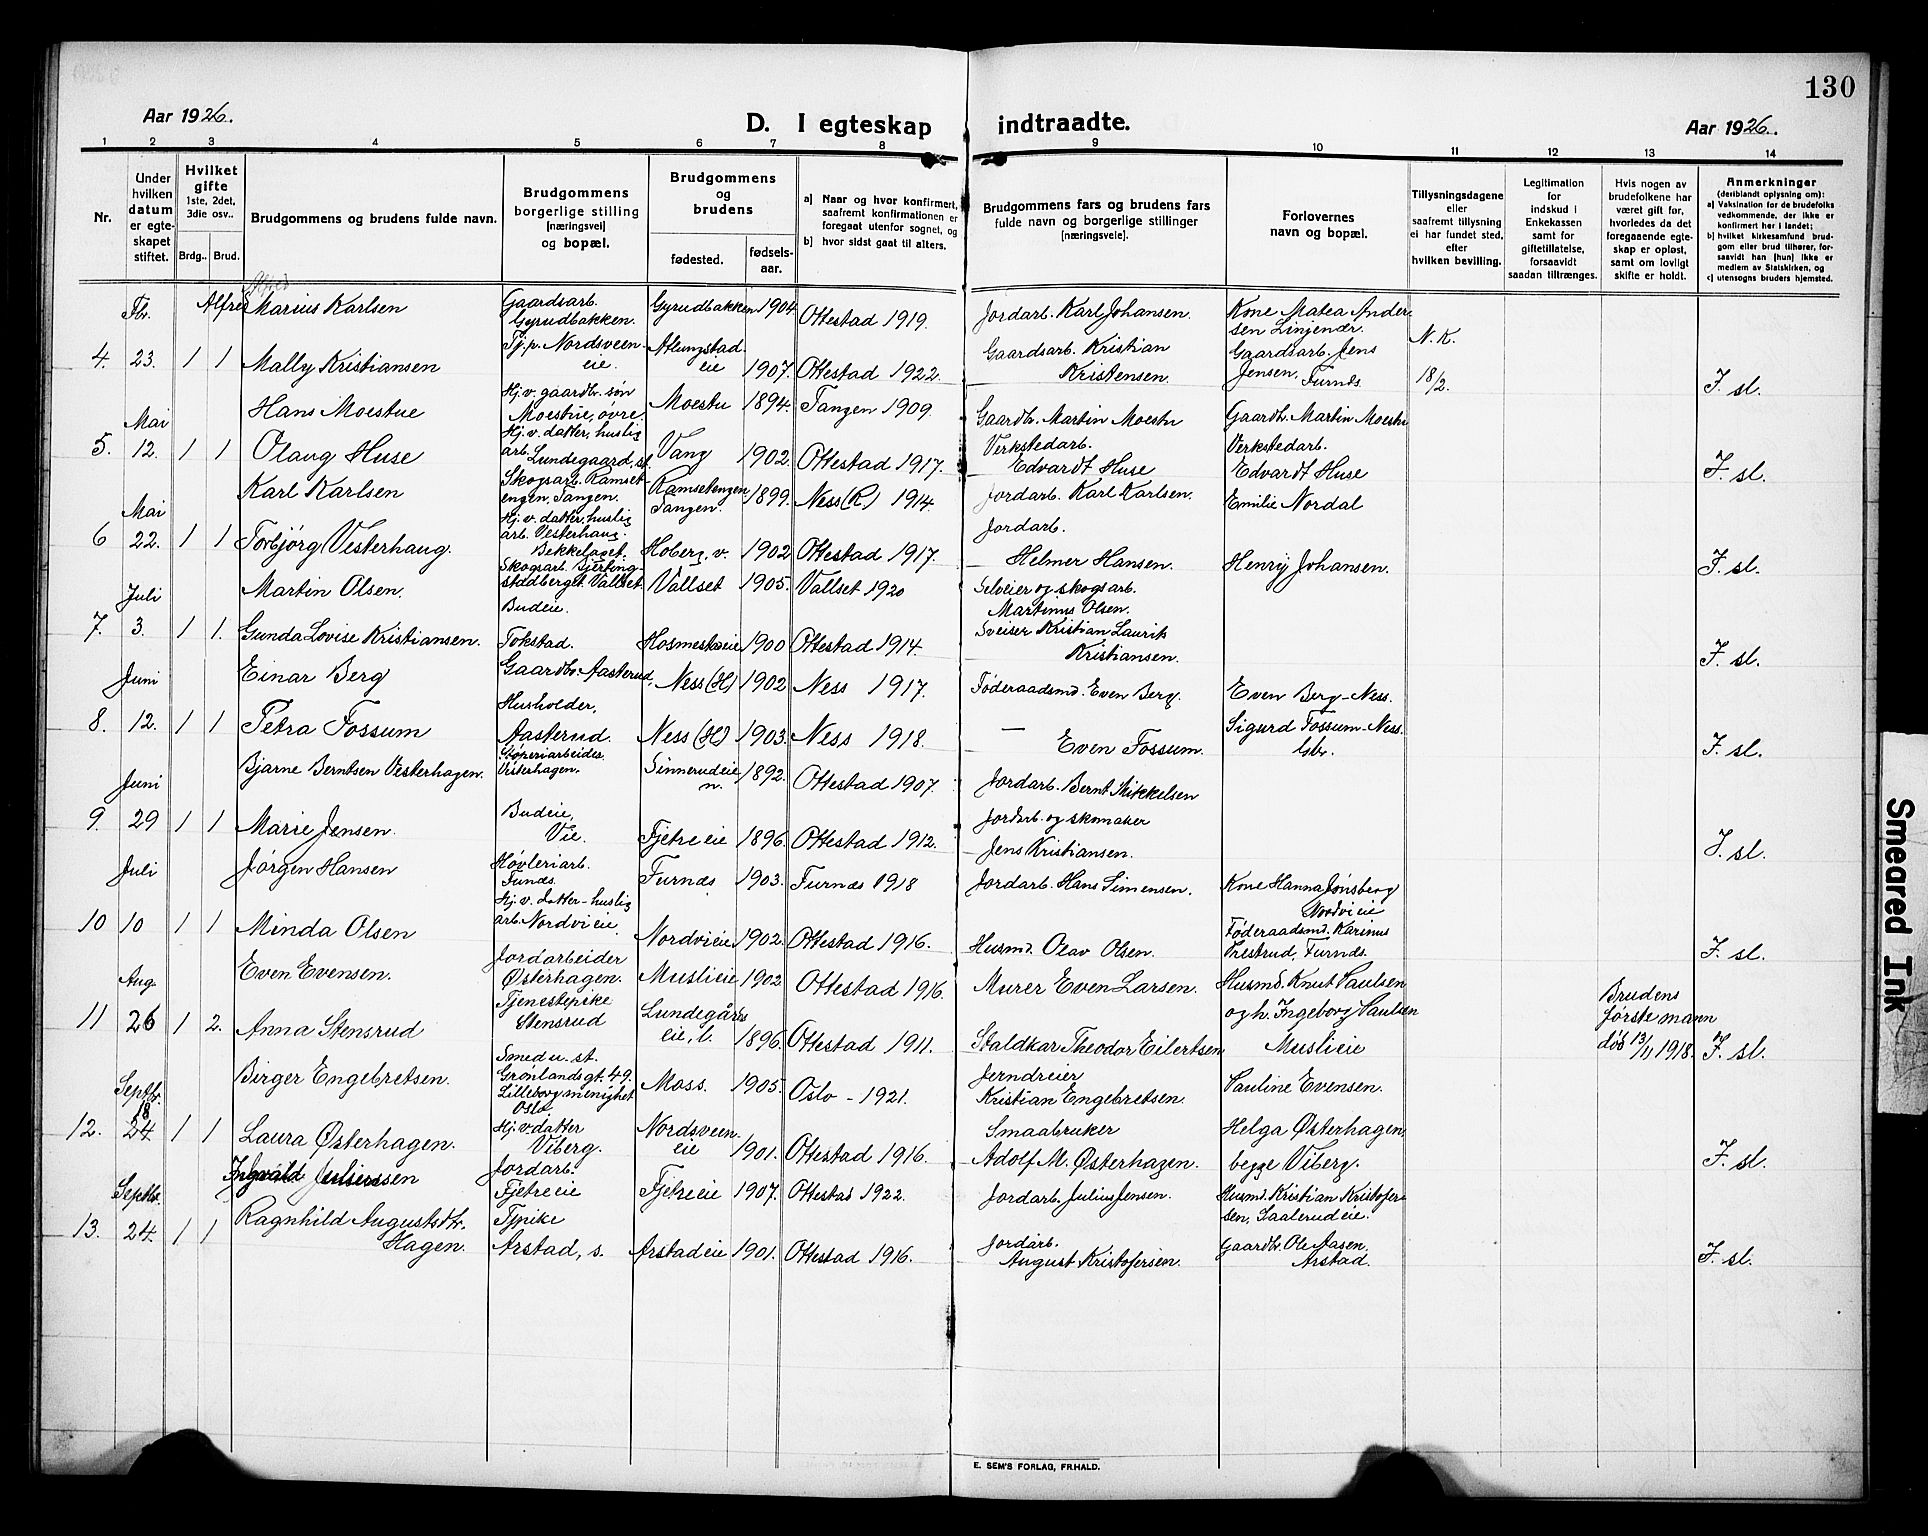 130
Aar 1926.
D. I egteskap indtraadte.
Aar 1926.
1 2 3 4 5 6 7 8 9 10 11 12 13 14
Nr.
Under hvilken datum er egteskapet stiftet.
Hvilket gifte 1ste, 2det, 3die osv..
Brdg.. Brud.
Brudgommens og brudens fulde navn.
Brudgommens borgerlige stilling (næringsvei) og bopæl.
Brudgommens og brudens
fødested. fødselsaar.
a) Naar og hvor konfirmert, saafremt konfirmationen er foregaat utenfor sognet, og
b) hvor sidst gaat til alters.
Brudgommens fars og brudens fars fulde navn og borgerlige stillinger (næringsveie).
Forlovernes navn og bopæl.
Tillysningsdagene eller saafremt tillysning ei har fundet sted, efter hvilken bevilling.
Legitimation for indskud i Enkekassen samt for giftetillatelse, forsaavidt saadan tiltrænges.
Hvis nogen av brudefolkene har været gift før, hvorledes da det foregaaende egteskap er opløst, samt om lovligt skifte er holdt.
Anmerkninger (deriblandt oplysning om):
a) Vaksination for de brudefolks vedkommende, der ikke er konfirmert her i landet;
b) hvilket kirkesamfund brudgom eller brud tilhører, forsaavidt han (hun) ikke er medlem av Statskirken, og
c) utensogns bruders hjemsted.
Fbr. Alfred Marius Karlsen Gaardsarb. Gyrudbakken. Gyrudbakken 1904 Ottestad 1919. Jordarb. Karl Johansen. Kone Matea Andersen Linjenær. N. K.
4. 23. 1 1 Mally Kristiansen Tj.p. Nordsveeneie. Atlungstadeie 1907. Ottestad 1922. Gaardsarb. Kristian Kristensen. Gaardsarb. Jens Jensen, Furnes. 18/2. J. sl.
Mai Hans Moestue Hj. v. gaardbr. søn Moestue, øvre Moestu 1894. Tangen 1909. Gaardbr. Martin Moestu Gaardbr. Martin Moestu
5. 12. 1 1 Olaug Huse Hj. v. datter, huslig arb. Lundegaard, st. Vang 1902. Ottestad 1917. Verkstedarb. Edvardt Huse Verkstedarb. Edvardt Huse J. sl.
Mai Karl Karlsen Skogsarb. Ramsetengen, Tangen. Ramsetengen Tangen. 1899. Ness (R.) 1914. Jordarb. Karl Karlsen. Emilie Nordal
6 22. 1 1 Torbjørg Vesterhaug. Hj. v. datter, huslig arb. Vesterhaug. Bekkelaget. Hoberg. v. 1902 Ottestad 1917. Jordarb. Helmer Hansen. Henry Johansen. J. sl.
Juli Martin Olsen. Skogsarb. stadberget Vallset Vallset 1905. Vallset 1920 Selveier og skogsarb. Martinus Olsen.
7. 3. 1 1. Gunda Lovise Kristiansen. Budeie. Tokstad. Hosmestadeie 1900 Ottestad 1914. Sveiser Kristian Laurits Kristiansen. J. sl.
Juni Einar Berg Gaardbr. Aasterud, Ness (H) 1902 Ness 1917. Føderaadsmd. Even Berg. Even Berg - Ness.
8. 12. 1 1 Petra Fossum Husholder, Aasterud. Ness (H) 1903. Ness 1918. — Even Fossum. Sigurd Fossum - Ness. Gbr. J. sl.
Juni Bjarne Berntsen Vesterhagen. Støperiarbeider. Vesterhagen. Sinnerudeie n. 1892. Ottestad 1907. Jordarb. Bernt Mikkelsen
9. 29 1 1 Marie Jensen. Budeie, Vie. Fjetreeie 1896. Ottestad 1912. Jordarb. og skomaker Jens Kristiansen. J. sl.
Juli Jørgen Hansen Høvleriarb. Funæs. Furnæs 1903. Furnæs 1918 Jordarb. Hans Simensen. Kone Hanna Jønsberg Nordvieie
10 10 1 1 Minda Olsen Hj. v. datter - huslig arb. Nordvieie. Nordvieie 1902. Ottestad 1916. Husmd. Olav Olsen. Føderaadsmd. Karinus Frestrud, Furnds. J. sl.
Aug. Even Evensen. Jordarbeider Østerhagen. Muslieie 1902 Ottestad 1916. Murer Even Larsen. Husmd. Knut Paulsen
11 26 1 2. Anna Stensrud Tjenestepike Stensrud Lundegårdseie, l. 1896. Ottestad 1911. Staldkar Theodor Eilertsen og h. Ingeborg Paulsen Muslieie Brudens første mann død 13/11 1918. J. sl.
Septbr. 18 Birger Engebretsen. Smed u. st. Grønlandsgt. 49. Lilleborg menighet Oslo Moss. 1905. Oslo - 1921. Jerndreier Kristian Engebretsen. Pauline Evensen.
12. 24. 1 1 Laura Østerhagen. Hj. v. datter Viberg. Nordsveeneie 1901. Ottestad 1916. Smaabruker Adolf M. Østerhagen. Helga Østerhagen begge Viberg. J. sl.
Septbr. Ingvald Juliussen Jordarb. Fjetreeie Fjetreeie 1907. Ottestad 1922. Jordarb. Julius Jensen. Husmd. Kristian Kristofersen, Saalerudeie.
13. 24. 1 1 Ragnhild Augustsdtr. Hagen. Tjpike Arstad, s. Arstadeie 1901. Ottestad 1916. Jordarb. August Kristofersen. Gaardbr. Ole Aasen. Arstad. J. sl.
E. SEM'S FORLAG, FR.HALD.
Smeared Ink